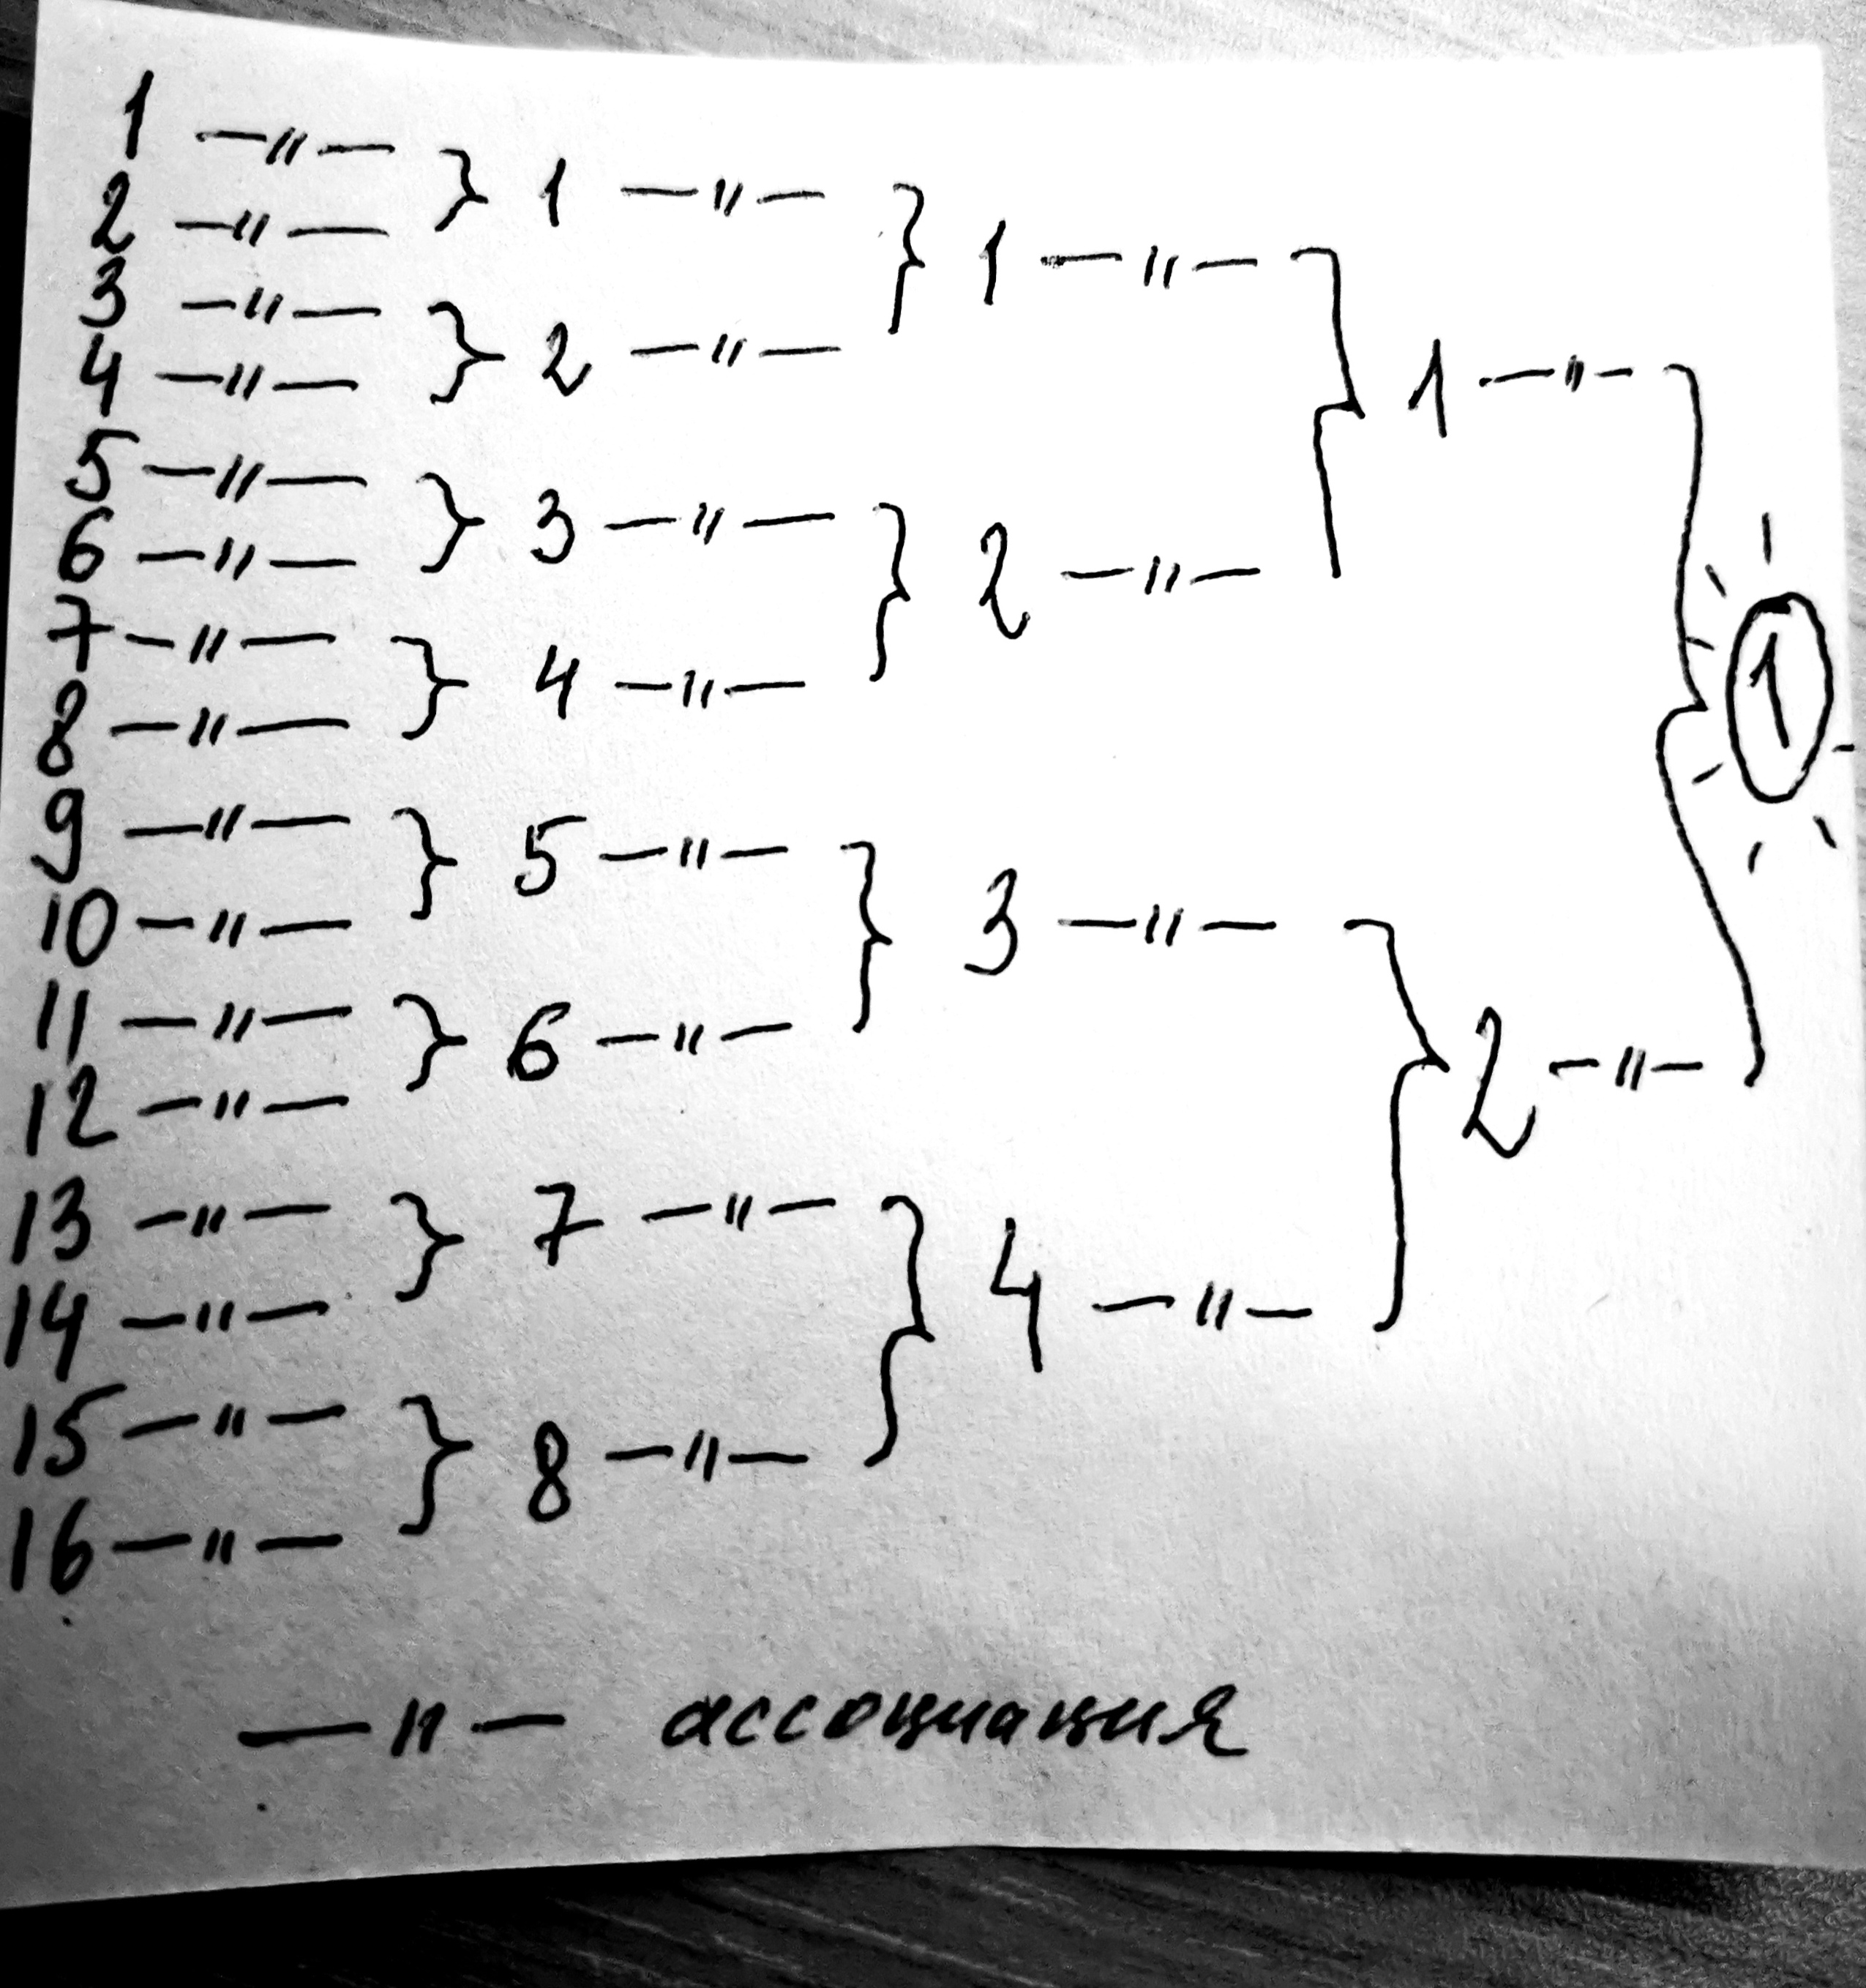 1 —〃— } 1 —〃— } 1 —〃— } 1 —〃— } 1
2 —〃—
3 —〃— } 2 —〃—
4 —〃—
5 —〃— } 3 —〃— } 2 —〃—
6 —〃—
7 —〃— } 4 —〃—
8 —〃—
9 —〃— } 5 —〃— } 3 —〃— } 2 —〃—
10 —〃—
11 —〃— } 6 —〃—
12 —〃—
13 —〃— } 7 —〃— } 4 —〃—
14 —〃—
15 —〃— } 8 —〃—
16 —〃—
—〃— ассоциация